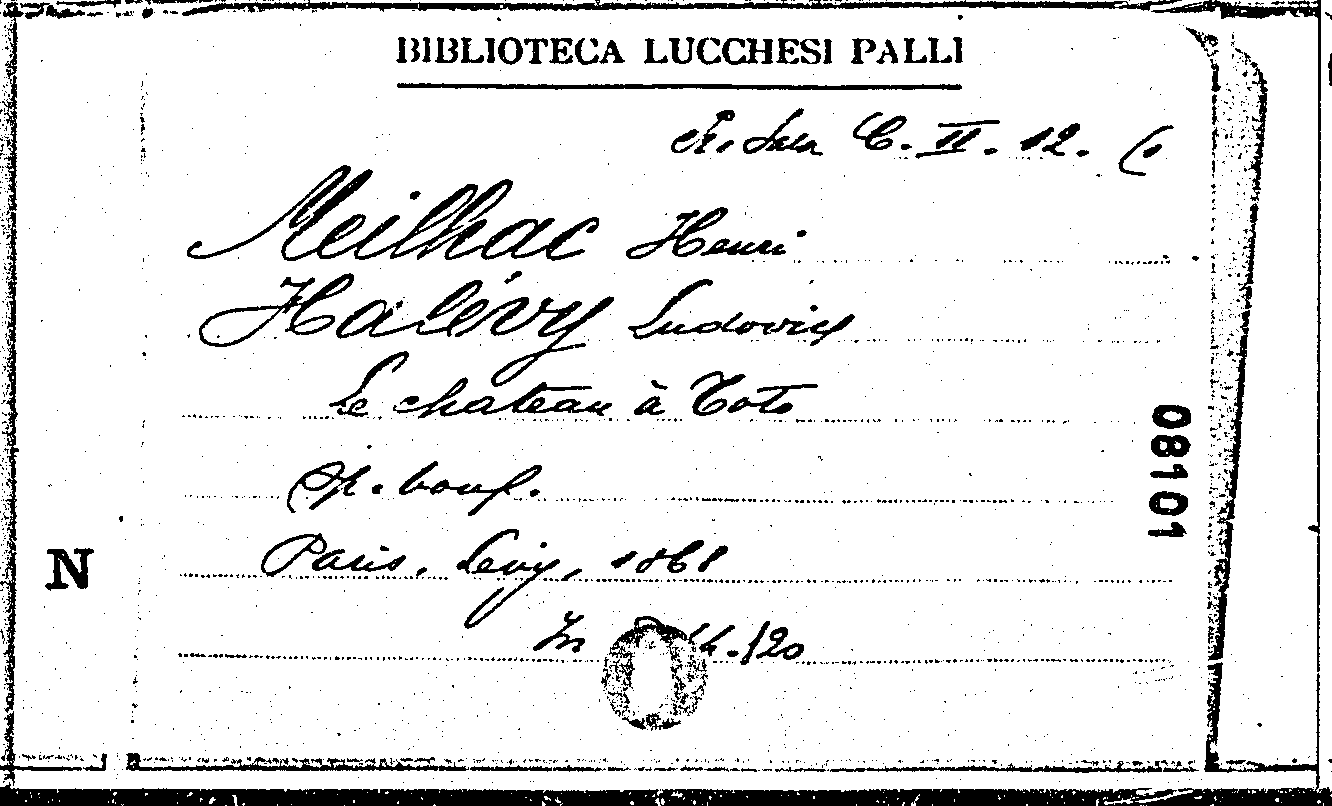 BIBLIOTECA LUCCHESI PALLI
C. II. 12.
Meilhac Henri
Halévy Ludovic
Le chateau à Toto
Op. bouf.
Paris. Levy, 1868
In
08101
N